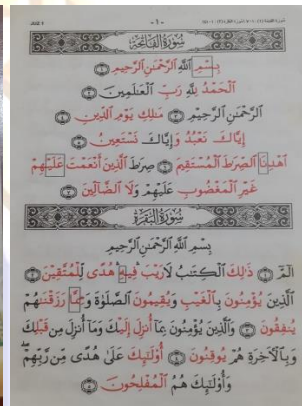 - 1 -
سُورَةُ الْفَاتِحَةِ
بِسْمِ اللَّهِ الرَّحْمَٰنِ الرَّحِيمِ ۝١
الْحَمْدُ لِلَّهِ رَبِّ الْعَٰلَمِينَ ۝٢
الرَّحْمَٰنِ الرَّحِيمِ ۝٣ مَٰلِكِ يَوْمِ الدِّينِ ۝٤
إِيَّاكَ نَعْبُدُ وَإِيَّاكَ نَسْتَعِينُ ۝٥
اهْدِنَا الصِّرَٰطَ الْمُسْتَقِيمَ ۝٦ صِرَٰطَ الَّذِينَ أَنْعَمْتَ عَلَيْهِمْ
غَيْرِ الْمَغْضُوبِ عَلَيْهِمْ وَلَا الضَّالِّينَ ۝٧
سُورَةُ الْبَقَرَةِ
بِسْمِ اللَّهِ الرَّحْمَٰنِ الرَّحِيمِ
الٓمٓ ۝١ ذَٰلِكَ الْكِتَٰبُ لَا رَيْبَ فِيهِ هُدًى لِلْمُتَّقِينَ ۝٢
الَّذِينَ يُؤْمِنُونَ بِالْغَيْبِ وَيُقِيمُونَ الصَّلَوٰةَ وَمِمَّا رَزَقْنَٰهُمْ
يُنفِقُونَ ۝٣ وَالَّذِينَ يُؤْمِنُونَ بِمَا أُنزِلَ إِلَيْكَ وَمَا أُنزِلَ مِن قَبْلِكَ
وَبِالْآخِرَةِ هُمْ يُوقِنُونَ ۝٤ أُولَٰئِكَ عَلَىٰ هُدًى مِّن رَّبِّهِمْ
وَأُولَٰئِكَ هُمُ الْمُفْلِحُونَ ۝٥